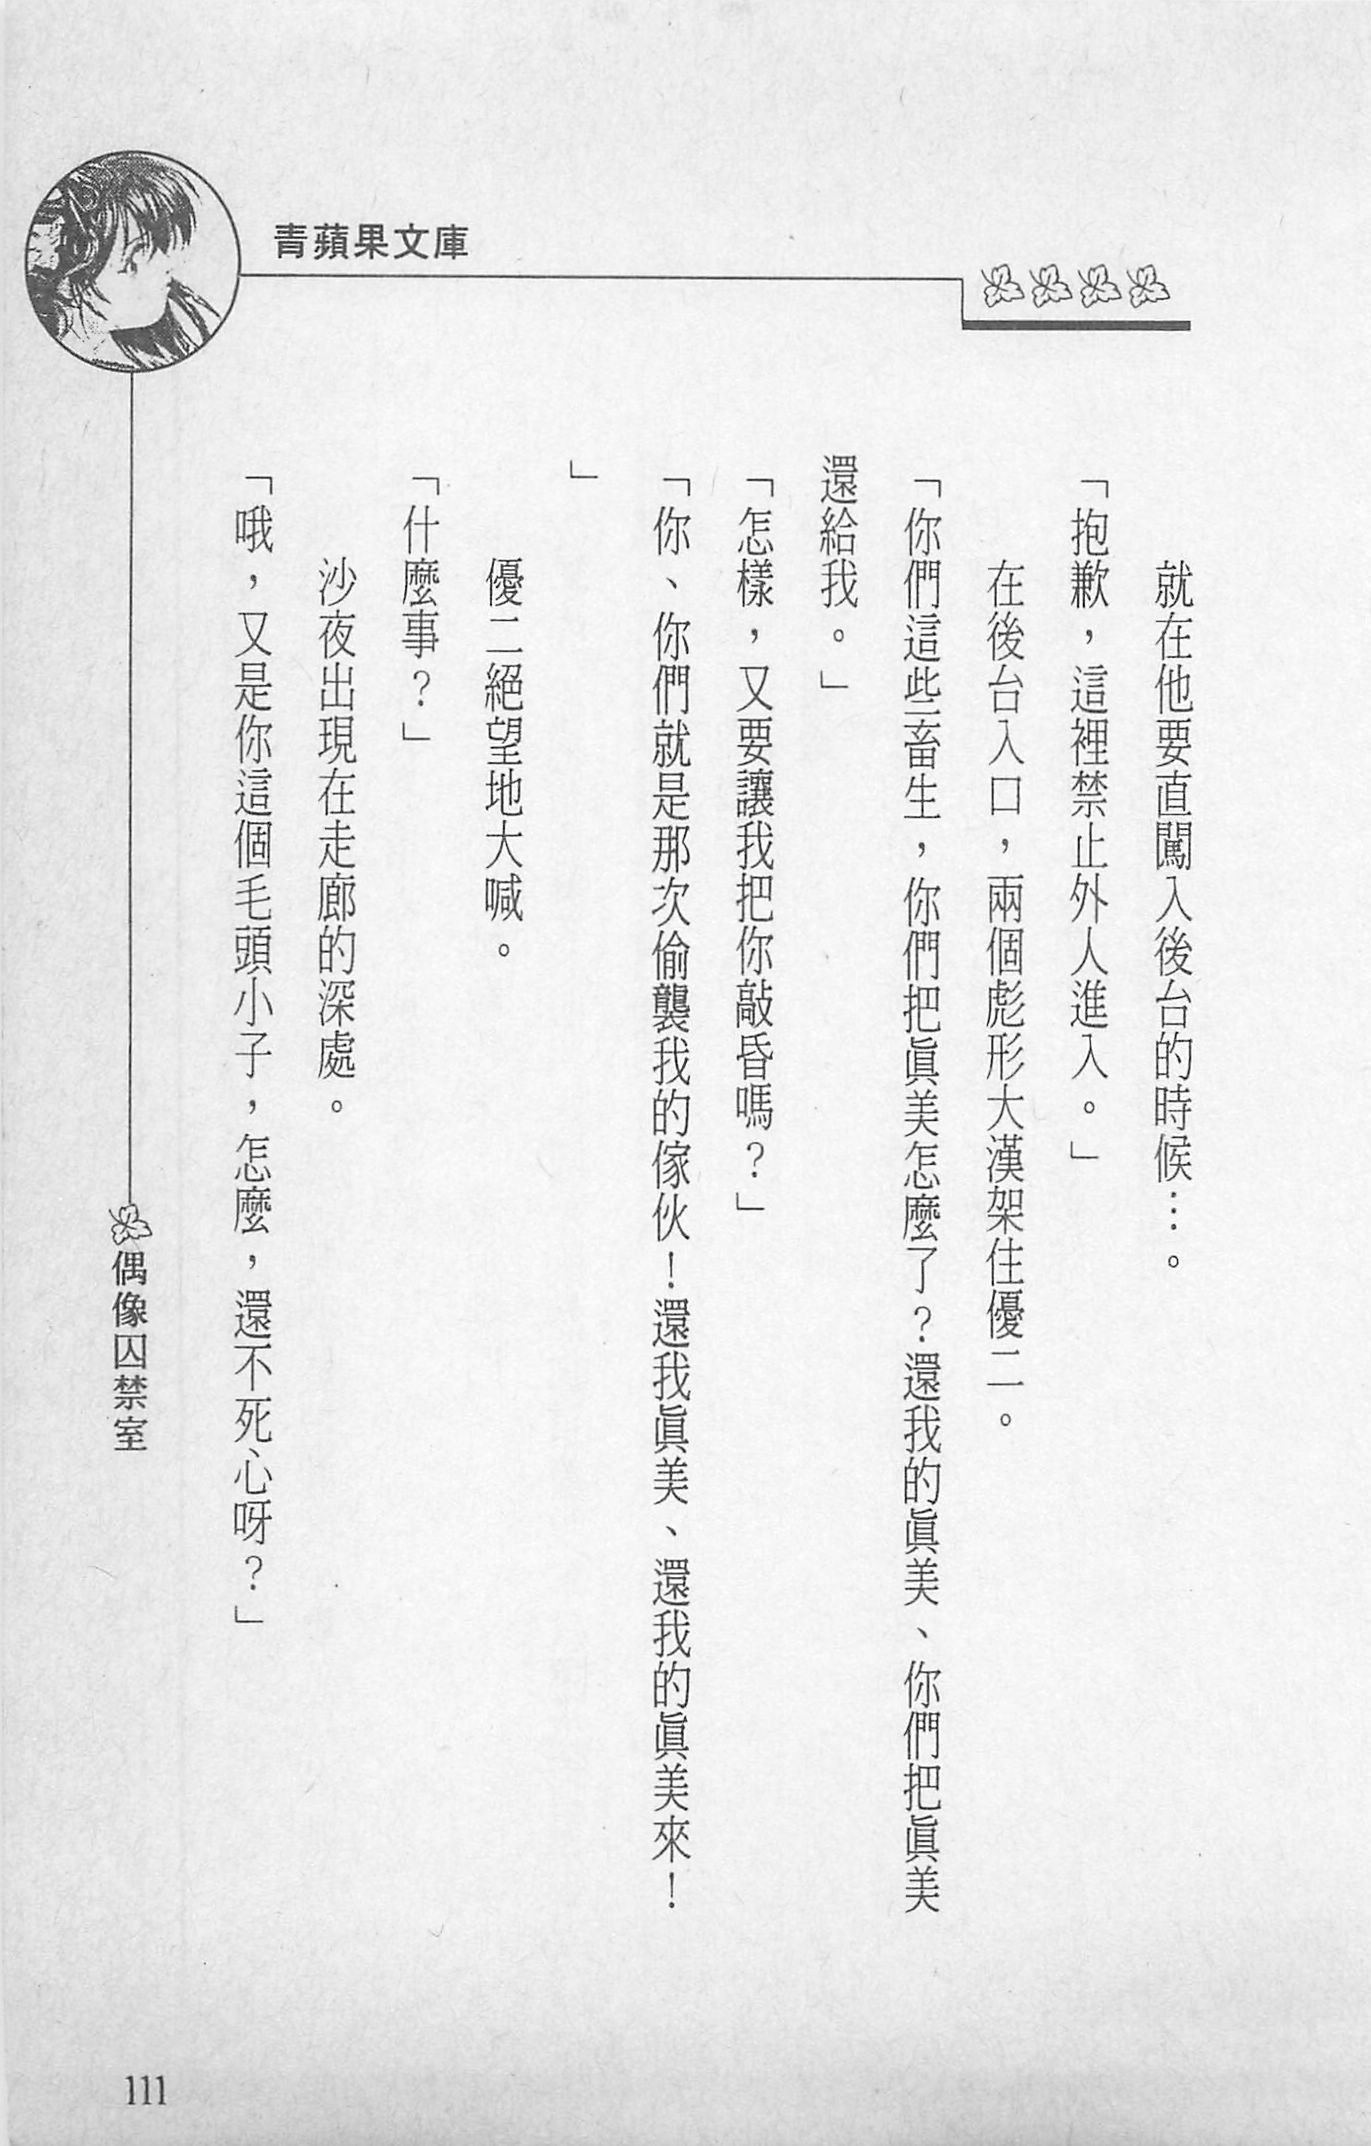 青蘋果文庫
就在他要直闖入後台的時候…。
「抱歉，這裡禁止外人進入。」
在後台入口，兩個彪形大漢架住優二。
「你們這些畜生，你們把眞美怎麼了？還我的眞美、你們把眞美
還給我。」
「怎樣，又要讓我把你敲昏嗎？」
「你、你們就是那次偷襲我的傢伙！還我眞美、還我的眞美來！
」
優二絕望地大喊。
「什麼事？」
沙夜出現在走廊的深處。
「哦，又是你這個毛頭小子，怎麼，還不死心呀？」
偶像囚禁室
111